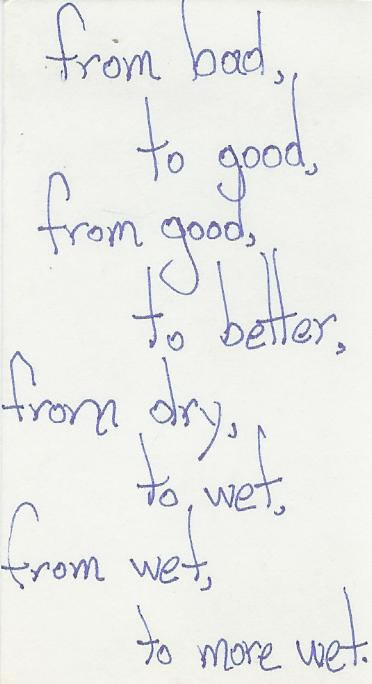 from bad,
to good,
from good,
to better,
from dry,
to wet,
from wet,
to more wet.